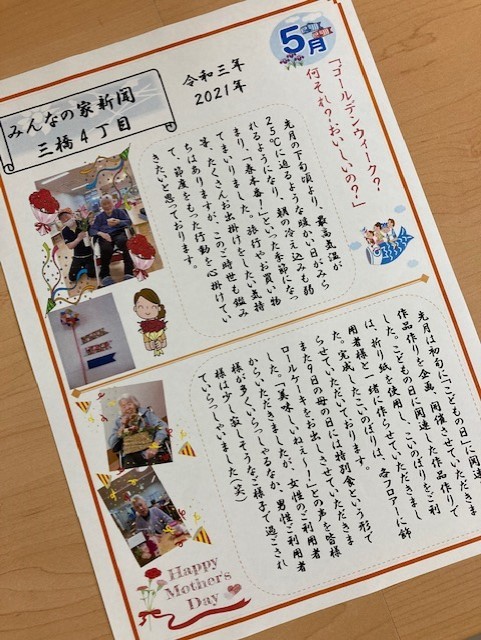 5月
令和三年
2021年
みんなの家新聞
三橋4丁目
「ゴールデンウィーク?
何それ?・おいしいの?・」
先月の下旬頃より、最高気温が
25℃に迫るような暖かい日がみら
れるようになり、朝の冷え込みも弱
まり、「春本番!」といった季節になっ
てまいりました。旅行やお買い物
等、たくさんお出掛けをしたい気持
ちはありますが、このご時世も鑑み
て、節度をもった行動を心掛けてい
きたいと思っております。
先月は初旬に「こどもの日」に関連
作品作りを企画、開催させていただきま
した。こどもの日に関連した作品作りで
は、折り紙を使用し、こいのぼりをご利
用者様と一緒に作らせていただきまし
た。完成したこいのぼりは、各フロアーに飾
らせていただいております。
また9日の母の日には特別食という形で
ロールケーキをお出しさせていただきま
した。「美味しいねぇ〜!」との声を皆様
からいただきましたが、女性のご利用者
様が多くいらっしゃるなか、男性ご利用者
様は少し寂しそうなご様子で過ごされ
ていらっしゃいました(笑)
Happy
Mother's
Day